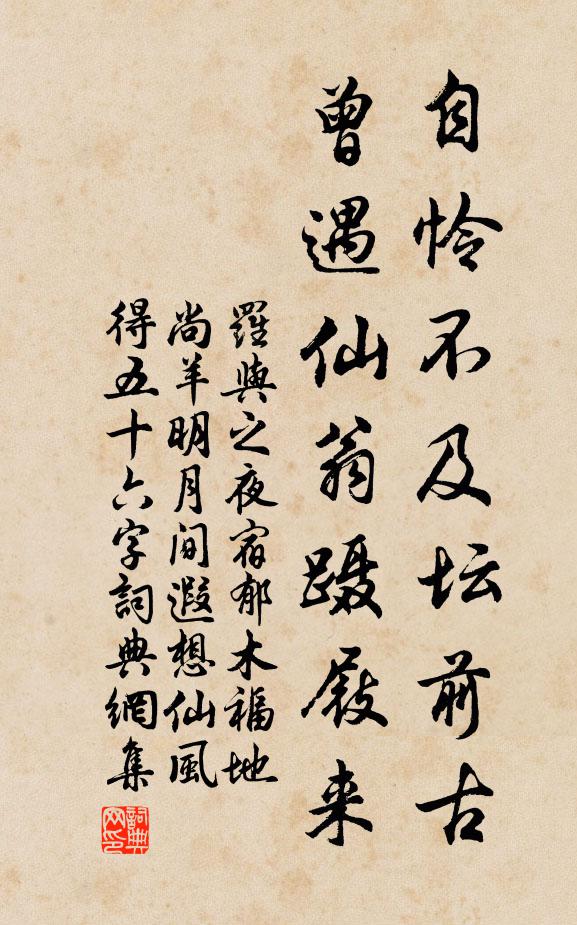 自怜不及坛前古
曾遇仙翁蹑屐来
羅與之夜宿郁木福地
尚羊明月间遐想仙風
得五十六字詞典網集
詞典网印